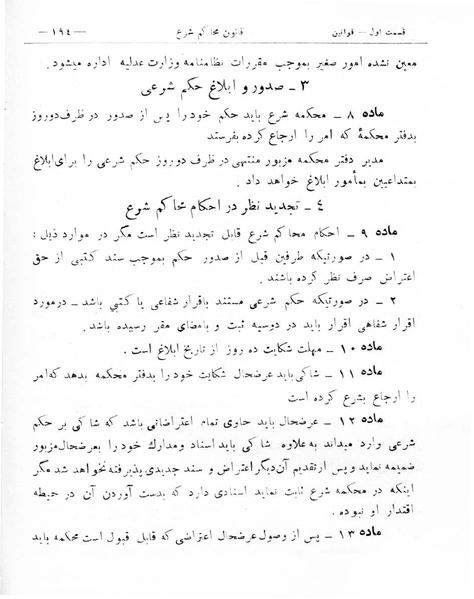 قسمت اول — قوانین
قانون محاکم شرع
— ۱۹٤ —
معین نشده امور صغیر بموجب مقررات نظامنامه وزارت عدلیه اداره میشود.
۳ ـ صدور و ابلاغ حکم شرعی
ماده ۸ ـ محکمه شرع باید حکم خود را پس از صدور در ظرف دوروز
بدفتر محکمهٔ که امر را ارجاع کرده بفرستد
مدیر دفتر محکمه مزبور منتهی در ظرف دوروز حکم شرعی را برای ابلاغ
بمتداعیین بمأمور ابلاغ خواهد داد .
٤ ـ تجدید نظر در احکام محاکم شرع
ماده ۹ ـ احکام محاکم شرع قابل تجدید نظر است مگر در موارد ذیل :
۱ ـ در صورتیکه طرفین قبل از صدور حکم بموجب سند کتبی از حق
اعتراض صرف نظر کرده باشند .
۲ ـ در صورتیکه حکم شرعی مستند باقرار شفاهی یا کتبی باشد ـ درمورد
اقرار شفاهی اقرار باید در دوسیه ثبت و بامضای مقر رسیده باشد .
ماده ۱۰ ـ مهلت شکایت ده روز از تاریخ ابلاغ است .
ماده ۱۱ ـ شاکی باید عرضحال شکایت خود را بدفتر محکمه بدهد که امر
را ارجاع بشرع کرده است
ماده ۱۲ ـ عرضحال باید حاوی تمام اعتراضاتی باشد که شاکی بر حکم
شرعی وارد میداند به علاوه شاکی باید اسناد ومدارك خود را بعرضحال مزبور
ضمیمه نماید و پس از تقدیم آن دیگر اعتراض و سند جدیدی پذیرفته نخواهد شد مگر
اینکه در محکمه شرع ثابت نماید اسنادی دارد که بدست آوردن آن در حیطه
اقتدار او نبوده .
ماده ۱۳ ـ پس از وصول عرضحال اعتراضی که قابل قبول است محکمه باید